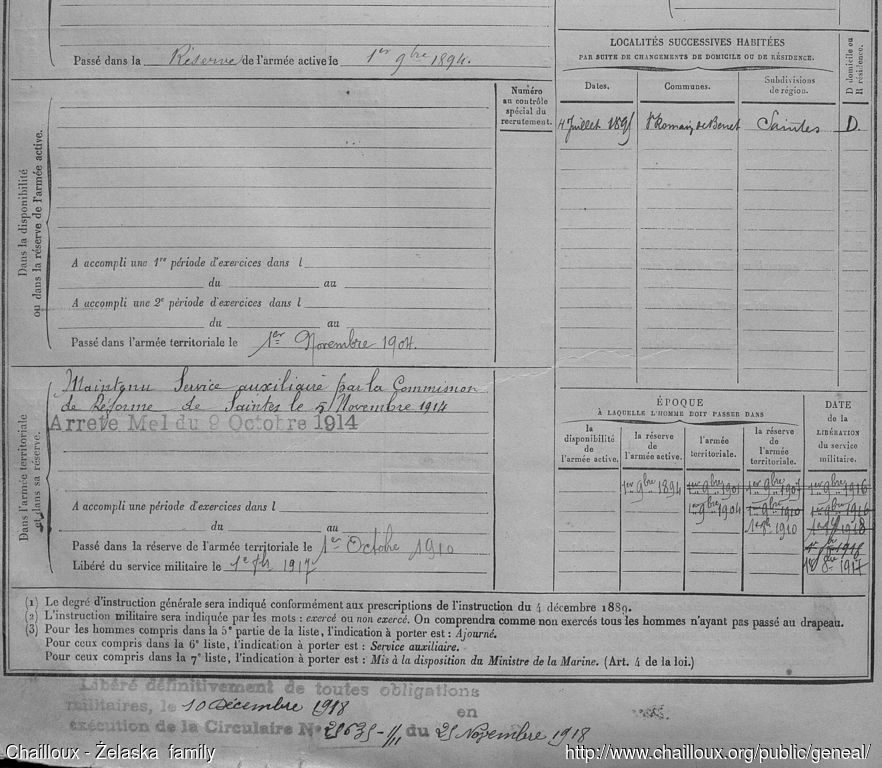 Passé dans la Réserve de l'armée active le 1er 9bre 1894.
Dans la disponibilité
ou dans la réserve de l'armée active.
Numéro
au contrôle
spécial du
recrutement.
A accompli une 1re période d'exercices dans l
du au
A accompli une 2e période d'exercices dans l
du au
Passé dans l'armée territoriale le 1er Novembre 1904.
Dans l'armée territoriale
et dans sa réserve.
Maintenu Service auxiliaire par la Commission
de Réforme de Saintes le 5 Novembre 1914
Arrêté Mel du 9 Octobre 1914
A accompli une période d'exercices dans l
du au
Passé dans la réserve de l'armée territoriale le 1er Octobre 1910
Libéré du service militaire le 1917
LOCALITÉS SUCCESSIVES HABITÉES
PAR SUITE DE CHANGEMENTS DE DOMICILE OU DE RÉSIDENCE.
Dates. Communes. Subdivisions
de région.
D domicile ou
R résidence.
4 Juillet 1895 St Romain de Benet Saintes D.
ÉPOQUE
À LAQUELLE L'HOMME DOIT PASSER DANS
la
disponibilité
de
l'armée active.
la réserve
de
l'armée active.
l'armée
territoriale.
la réserve
de
l'armée
territoriale.
DATE
de la
LIBÉRATION
du service
militaire.
1er 9bre 1894 1er 9bre 1901 1er 9bre 1907 1er 9bre 1916
1er 9bre 1904 1er 9bre 1910 1er 9bre 1916
1910 1918
1918
1917
(1) Le degré d'instruction générale sera indiqué conformément aux prescriptions de l'instruction du 4 décembre 1889.
(2) L'instruction militaire sera indiquée par les mots : exercé ou non exercé. On comprendra comme non exercés tous les hommes n'ayant pas passé au drapeau.
(3) Pour les hommes compris dans la 5e partie de la liste, l'indication à porter est : Ajourné.
Pour ceux compris dans la 6e liste, l'indication à porter est : Service auxiliaire.
Pour ceux compris dans la 7e liste, l'indication à porter est : Mis à la disposition du Ministre de la Marine. (Art. 4 de la loi.)
Libéré définitivement de toutes obligations
militaires, le 10 Décembre 1918 en
exécution de la Circulaire No du 25 Novembre 1918
Chailloux - Żelaska family
http://www.chailloux.org/public/geneal/